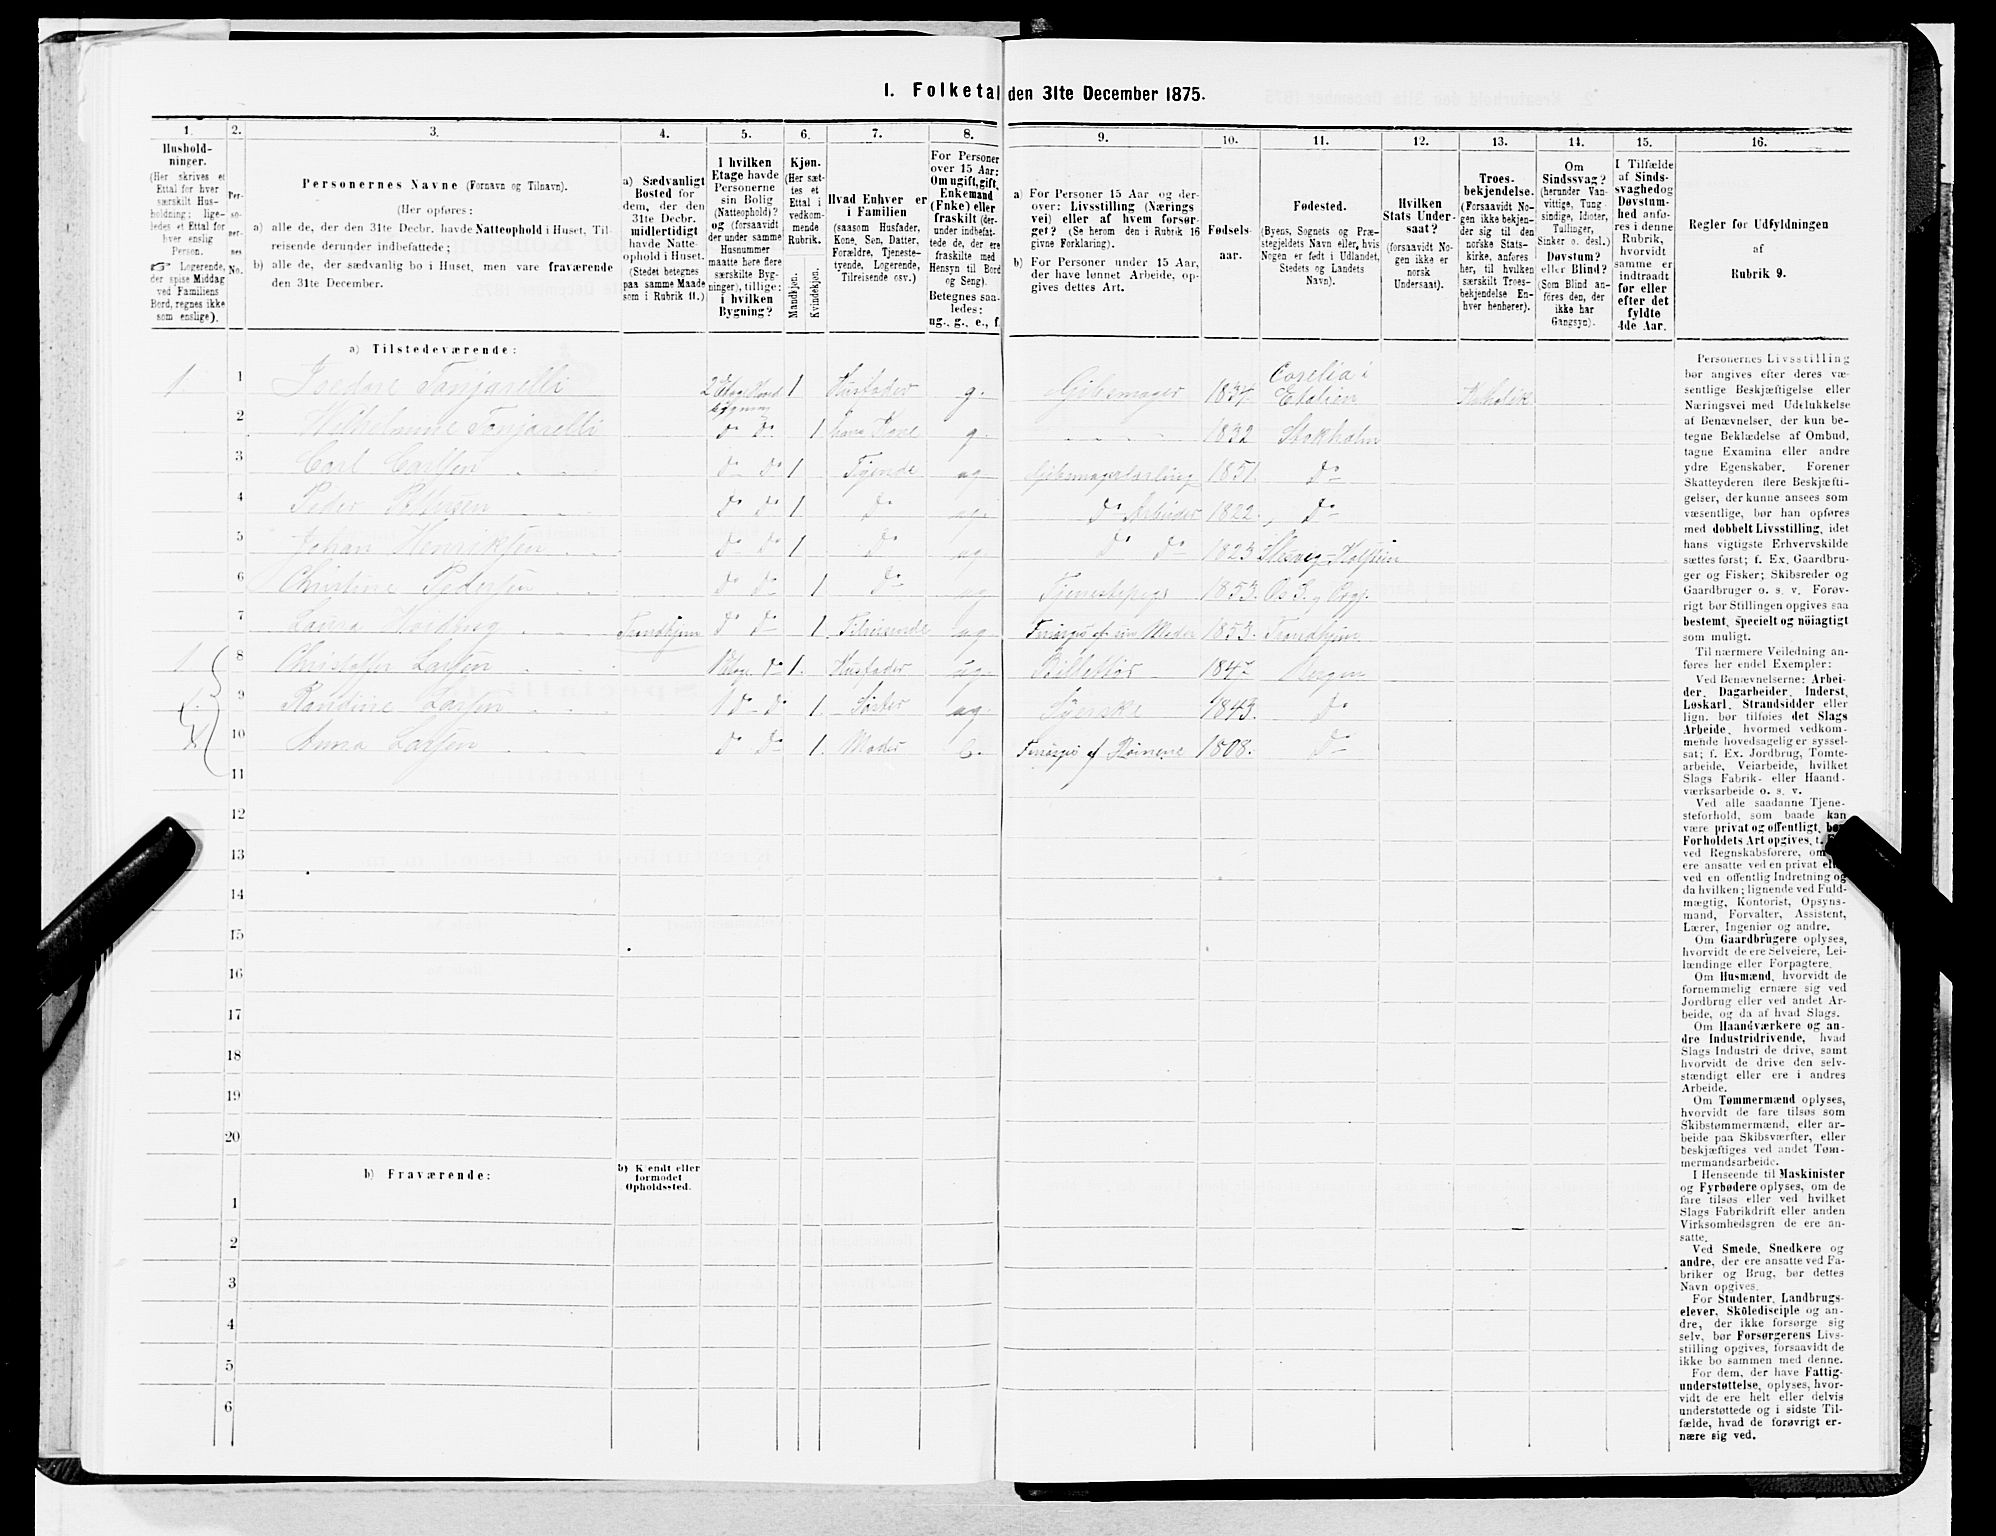 1. Folketal den 31te December 1875.
1. 2. 3. 4. 5. 6. 7. 8. 9. 10. 11. 12. 13. 14. 15. 16.
Hushold-
ninger.
(Her skrives et
Ettal for hver
særskilt Hus-
holdning; lige-
ledes et Ettal for
hver enslig
Person.
☞ Logerende,
der spise Middag
ved Familiens
Bord, regnes ikke
som enslige).
Per-
so-
ner-
nes
No.
Personernes Navne (Fornavn og Tilnavn).
(Her opføres:
a) alle de, der den 31te Decbr. havde Natteophold i Huset, Til-
reisende derunder indbefattede;
b) alle de, der sædvanlig bo i Huset, men vare fraværende
den 31te December.
a) Sædvanligt
Bosted for
dem, der den
31te Decbr.
midlertidigt
havde Natte-
ophold i Huset.
(Stedet betegnes
paa samme Maade
som i Rubrik 11.)
I hvilken
Etage havde
Personerne
sin Bolig
(Natteophold)?
og (forsaavidt
der under samme
Husnummer
maatte høre flere
særskilte Byg-
ninger), tillige:
i hvilken
Bygning?
Kjøn.
(Her sæt-
tes et
Ettal i
vedkom-
mende
Rubrik.
Mandkjøn.
Kvindekjøn.
Hvad Enhver er
i Familien
(saasom Husfader,
Kone, Søn, Datter,
Forældre, Tjeneste-
tyende, Logerende,
Tilreisende osv.)
For Personer
over 15 Aar:
Om ugift, gift,
Enkemand
(Enke) eller
fraskilt (der-
under indbefat-
tede de, der ere
fraskilte med
Hensyn til Bord
og Seng).
Betegnes saa-
ledes:
ug., g., e., f.
a) For Personer 15 Aar og der-
over: Livsstilling (Nærings
vei) eller af hvem forsør-
get? (Se herom den i Rubrik 16
givne Forklaring).
b) For Personer under 15 Aar,
der have lønnet Arbeide, op-
gives dettes Art.
Fødsels-
aar.
Fødested.
(Byens, Sognets og Præ-
stegjeldets Navn eller, hvis
Nogen er født i Udlandet,
Stedets og Landets
Navn).
Hvilken
Stats Under-
saat?
(forsaavidt No-
gen ikke er
norsk
Undersaat).
Troes-
bekjendelse.
(Forsaavidt No-
gen ikke bekjen-
der sig til den
norske Stats-
kirke, anføres
her, til hvilken
særskilt Troes-
bekjendelse En-
hver henhører).
Om
Sindssvag?
(herunder Van-
vittige, Tung
sindige, Idioter,
Tullinger,
Sinker o. desl.)
Døvstum?
eller Blind?
(Som Blind an-
føres den, der
ikke har
Gangsyn).
I Tilfælde
af Sinds-
svaghed og
Døvstum-
hed anfø-
res i denne
Rubrik,
hvorvidt
samme er
indtraadt
før eller
efter det
fyldte
4de Aar.
Regler for Udfyldningen
af
Rubrik 9.
a) Tilstedeværende:
1 1 Isedore Tonjarelli 2 Etage 1 Husfader g. Gibsmager 1837 i Etalien Katholik
2 Wilhelmine Tonjarelli Do Do 1 hans Kone g. 1832 Stokholm
3 Carl Carlsen Do Do 1 Tjende ug. 1851. Do
4 Peder Do Do 1 Do ug. Do Arbeider 1822. Do
5 Johan Henriksen Do Do 1 Do ug. Do Do 1823 Slesvig-Holsten
6 Christine Pedersen Do Do 1 Do ug Tjenestepige 1853.
7 Laura Trondhjem Do Do 1 Tilreisende ug. sin Moder 1853. Trondhjem
1 8 Christoffer Larsen 1 Etage Do 1. Husfader ug. 184 Bergen
9 Randine Larsen 1 Do Do 1. Søster ug. Syerske 1843. Do
10 Anna Larsen Do Do 1. Moder e. af Børnene 1808. Do
11
12
13
14
15
16
17
18
19
20
b) Fraværende:
b) Kjendt eller
formodet
Opholdssted.
1
2
3
4
5
6
Personernes Livsstilling
bør angives efter deres væ-
sentlige Beskjæftigelse eller
Næringsvei med Udelukkelse
af Benævnelser, der kun be-
tegne Beklædelse af Ombud,
tagne Examina eller andre
ydre Egenskaber. Forener
Skatteyderen flere Beskjæfti-
gelser, der kunne ansees som
væsentlige, bør han opføres
med dobbelt Livsstilling, idet
hans vigtigste Erhvervskilde
sættes først; f. Ex. Gaardbru-
ger og Fisker; Skibsreder og
Gaardbruger o. s. v. Forøv-
rigt bør Stillingen opgives saa
bestemt, specielt og nöiagtigt
som muligt.
Til nærmere Veiledning an-
føres her endel Exempler:
Ved Benævnelserne: Arbei-
der, Dagarbeider, Inderst,
Løskarl, Strandsidder eller
lign. bør tilføies det Slags
Arbeide, hvormed vedkom-
mende hovedsagelig er syssel-
sat; f. Ex. Jordbrug, Tomte-
arbeide, Veiarbeide, hvilket
Slags Fabrik- eller Haand-
værksarbeide o. s. v.
Ved alle saadanne Tjene-
steforhold, som baade kan
være privat og offentligt, bør
Forholdets Art opgives, t.
ved Regnskabsførere, om
ere ansatte ved en privat el
ved en offentlig Indretning og
da hvilken; lignende ved Fuld-
mægtig, Kontorist, Opsyns-
mand, Forvalter, Assistent,
Lærer, Ingeniør og andre.
Om Gaardbrugere oplyses,
hvorvidt de ere Selveiere, Lei-
lændinge eller Forpagtere.
Om Husmænd, hvorvidt de
fornemmelig ernære sig ved
Jordbrug eller ved andet Ar-
beide, og da af hvad Slags.
Om Haandværkere og an-
dre Industridrivende, hvad
Slags Industri de drive, samt
hvorvidt de drive den selv-
stændigt eller ere i andres
Arbeide.
Om Tømmermænd oplyses,
hvorvidt de fare tilsøs som
Skibstømmermænd, eller ar-
beide paa Skibsværfter, eller
beskjæftiges ved andet Tøm-
mermandsarbeide.
I Henseende til Maskinister
og Fyrbødere oplyses, om de
fare tilsøs eller ved hvilket
Slags Fabrikdrift eller anden
Virksomhedsgren de ere an-
satte.
Ved Smede, Snedkere og
andre, der ere ansatte ved Fa-
briker og Brug, bør dettes
Navn opgives.
For Studenter, Landbrugs-
elever, Skoledisciple og an-
dre, der ikke forsørge sig
selv, bør Forsørgerens Livs-
stilling opgives, forsaavidt de
ikke bo sammen med denne.
For dem, der have Fattig-
understøttelse, oplyses, hvor-
vidt de ere helt eller delvis
understøttede og i sidste Til-
fælde, hvad de forøvrigt er-
nære sig ved.